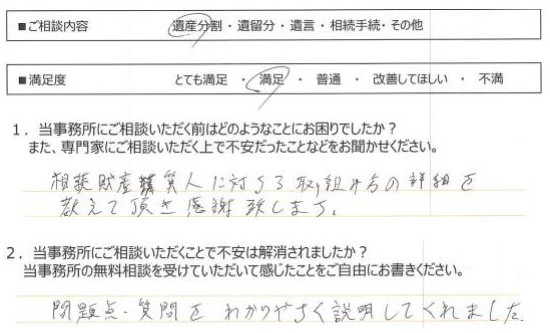 ■ご相談内容　遺産分割・遺留分・遺言・相続手続・その他
■満足度　とても満足　・　満足　・　普通　・　改善してほしい　・　不満
1．当事務所にご相談いただく前はどのようなことにお困りでしたか？
また、専門家にご相談いただく上で不安だったことなどをお聞かせください。
相続財産 人に対する取り組み方の詳細を
教えて頂き感謝致します。
2．当事務所にご相談いただくことで不安は解消されましたか？
当事務所の無料相談を受けていただいて感じたことをご自由にお書きください。
問題点・質問をわかりやすく説明してくれました。